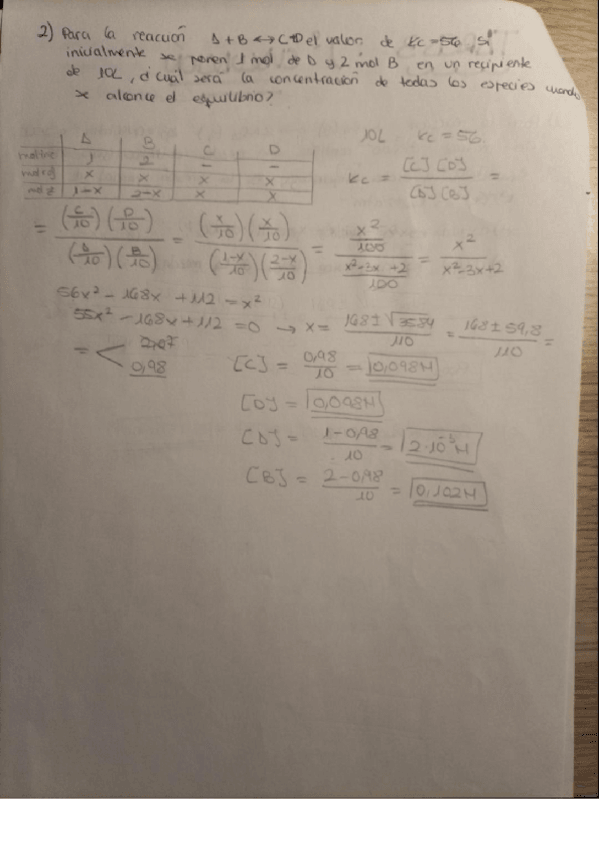 2) Para la reacción A + B ↔ C + D el valor de Kc = 56, si
inicialmente se ponen 1 mol de A y 2 mol B en un recipiente
de 10L, ¿cuál será la concentración de todas las especies cuando
se alcance el equilibrio?
10L Kc = 56.
A B C D
1 2 - -
x x x x
1-x 2-x x x
Kc = [C] [D] / [A] [B] =
= (C/10) (D/10) / (A/10) (B/10) = (x/10) (x/10) / (1-x/10) (2-x/10) = x²/100 / x²-3x+2/100 = x² / x²-3x+2
56x² - 168x + 112 = x²
55x² - 168x + 112 = 0 → x = 168 ± √3584 / 110 = 168 ± 59,8 / 110 =
= < 2,07
0,98
[C] = 0,98/10 = 0,098M
[D] = 0,098M
[A] = 1-0,98/10 = 2·10⁻³M
[B] = 2-0,98/10 = 0,102M